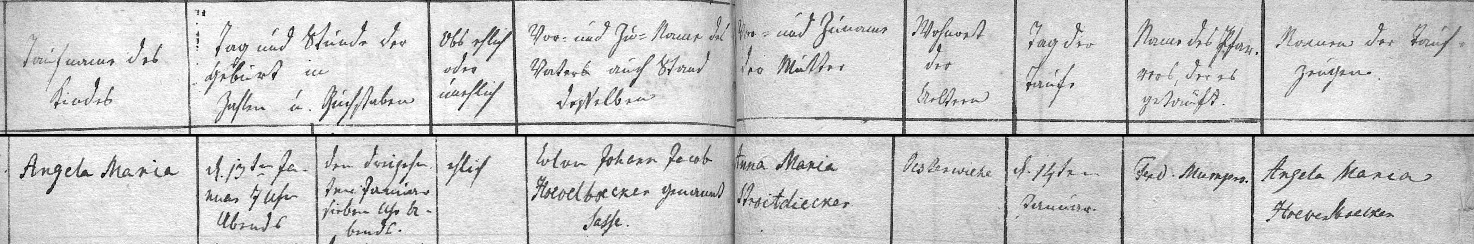 Taufname des
Kindes
Tag und Stunde der
Geburt in
Zahlen u. Buchstaben
Obs ehlich
oder
unehlich
Vor- und Zu-Name des
Vaters auch Stand
desselben
Vor- und Zuname
der Mutter
Wohnort
der
Aeltern
Tag der
Taufe
Name des Pfar-
rers der es
getauft.
Namen der Tauf-
zeugen.
Angela Maria
d. 13ten Ja-
nuar 7 Uhr
Abends
den dreizehn
ten Januar
sieben Uhr A-
bends.
ehlich
Colon Johann Jacob
Hoevelboecker genannt
Sasse.
Anna Maria
Stroitdiecker
Oesterwiehe
d. 14ten
Januar
Ferd.
Angela Maria
Hoevelboecker